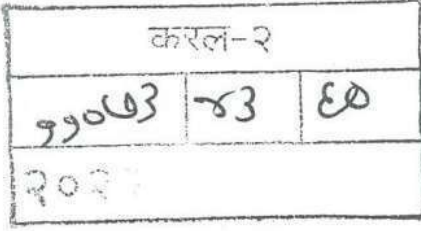 करल-२
११०७३ ४३ ६०
२०२